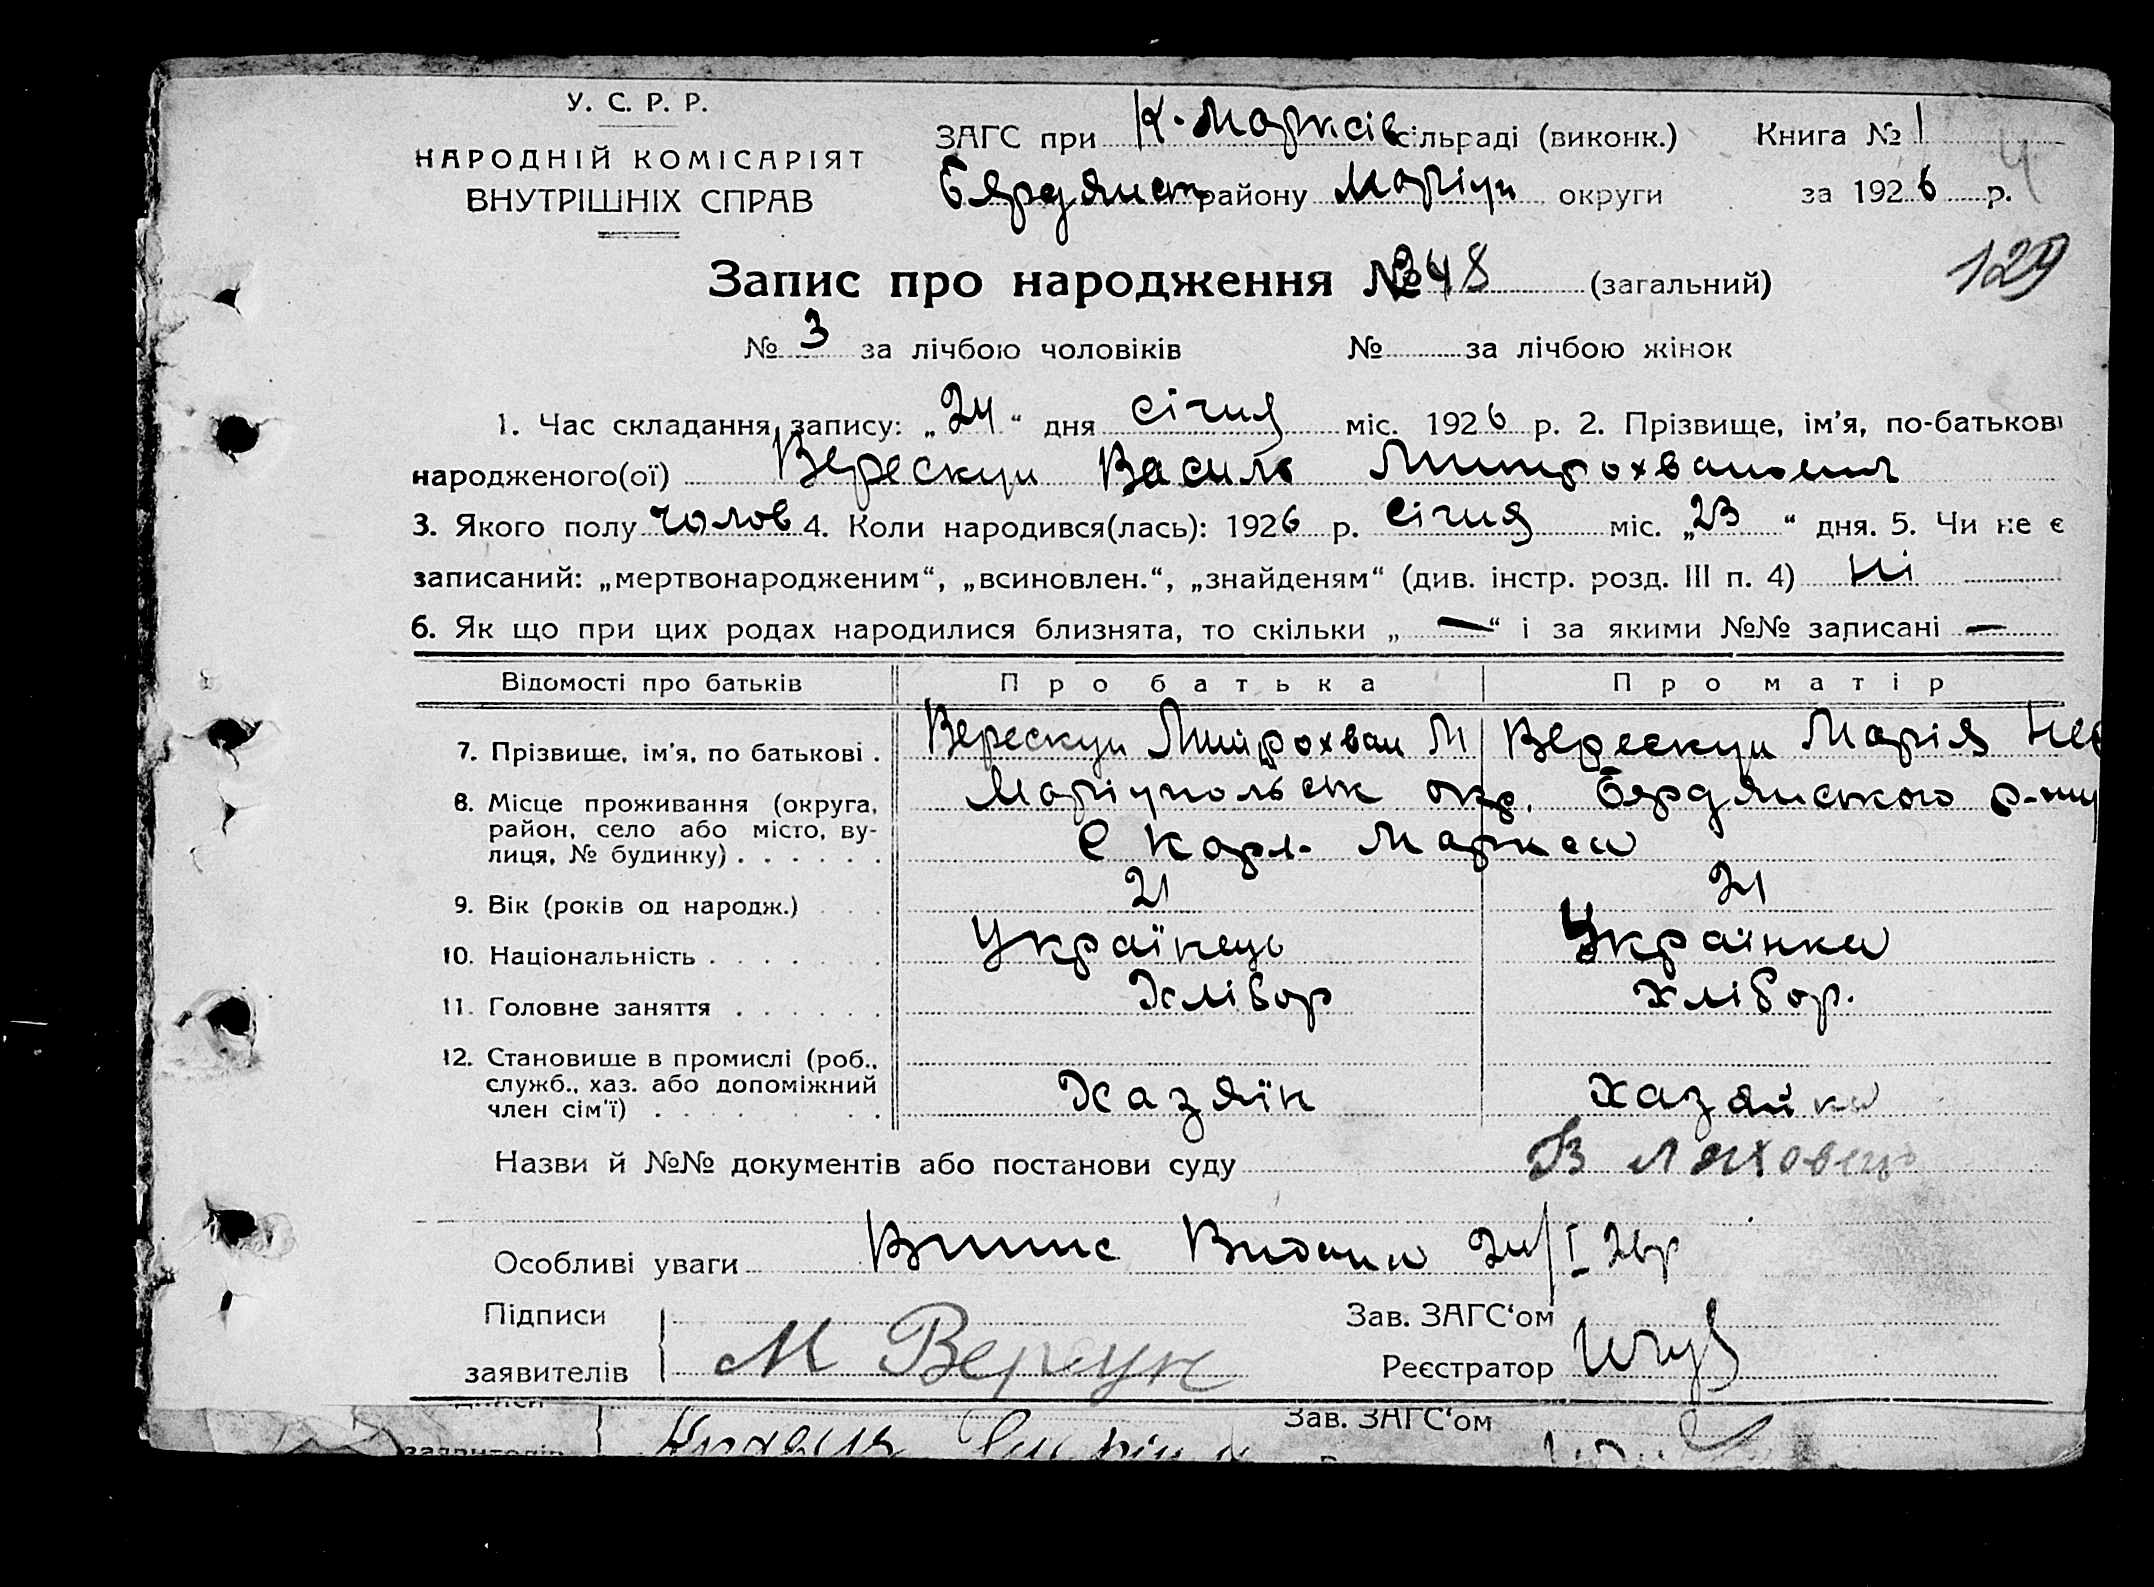 У. С. Р. Р.
НАРОДНІЙ КОМІСАРІЯТ
ВНУТРІШНІХ СПРАВ
ЗАГС при К. Марксів сільраді (виконк.) Книга № 1
Бердянськ району Маріуп округи за 1926 р.
4
129
Запис про народження № 348 (загальний)
№ 3 за лічбою чоловіків № за лічбою жінок
1. Час складання запису: „24“ дня січня міс. 1926 р. 2. Прізвище, ім'я, по-батькові
народженого(ої) Верескун Василь Митрохванович
3. Якого полу чолов 4. Коли народився(лась): 1926 р. січня міс. „23“ дня. 5. Чи не є
записаний: „мертвонародженим“, „всиновлен.“, „знайденям“ (див. інстр. розд. III п. 4) ні
6. Як що при цих родах народилися близнята, то скільки „—“ і за якими №№ записані —
Відомості про батьків Про батька Про матір
7. Прізвище, ім'я, по батькові . Верескун Митрохван М Верескун Марія
8. Місце проживання (округа, Маріупольськ окр. Бердянського р-ну
район, село або місто, ву-
лиця, № будинку) . . . . . . С Карл. Маркса
9. Вік (років од народж.) . . . 21 21
10. Національність . . . . . . . Українець Українка
11. Головне заняття . . . . . . Хлібор хлібор.
12. Становище в промислі (роб.,
служб., хаз. або допоміжний
член сім'ї) . . . . . . . . Хазяїн хазяйка
Назви й №№ документів або постанови суду В Ляховець
Особливі уваги Випис Видана 24/I 26р
Підписи Зав. ЗАГС'ом
заявителів М Верскун Реєстратор
Підписи Зав. ЗАГС'ом
заявителів